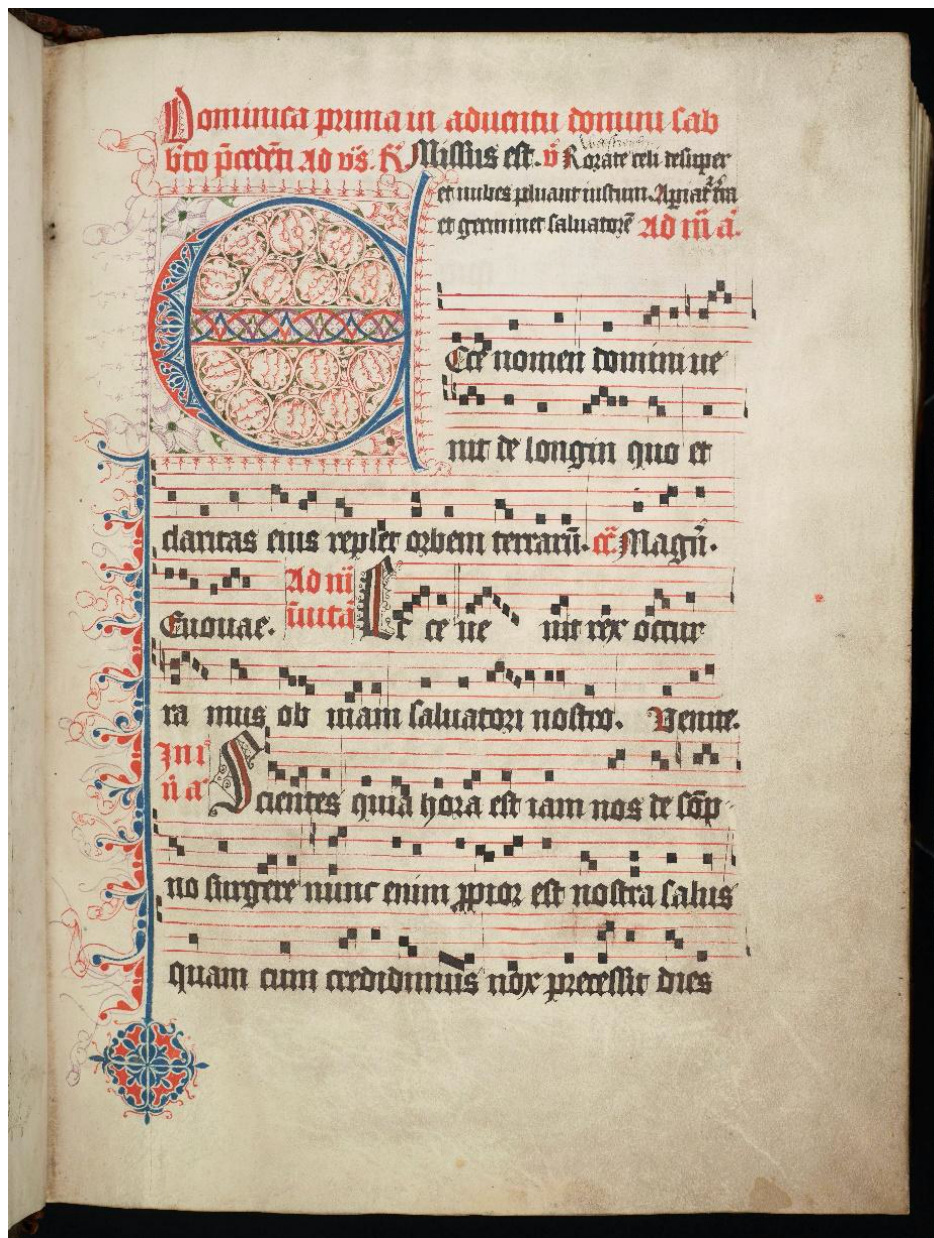 Dominica prima in aduentu domini sab
b̄to p̄cedn̄ti ad vs̄. R̄ Missus est. v̄ Rorate celi desuper
et nubes pluant iustum. Apiat̄ tr̄a
et germinet saluatorē Ad m̄ a.
Ecce nomen domini ue
nit de longin quo et
claritas eius replet orbem terrarū. cc̄ Magn̄.
Euouae. Ad m̄
īuita Ecce ue nit rex occur
ra mus ob uiam saluatori nostro. Venite.
In i
n̄ a Scientes quia hora est iam nos de sōp
no surgere nunc enim ꝓpior est nostra salus
quam cum credidimus nox precessit dies